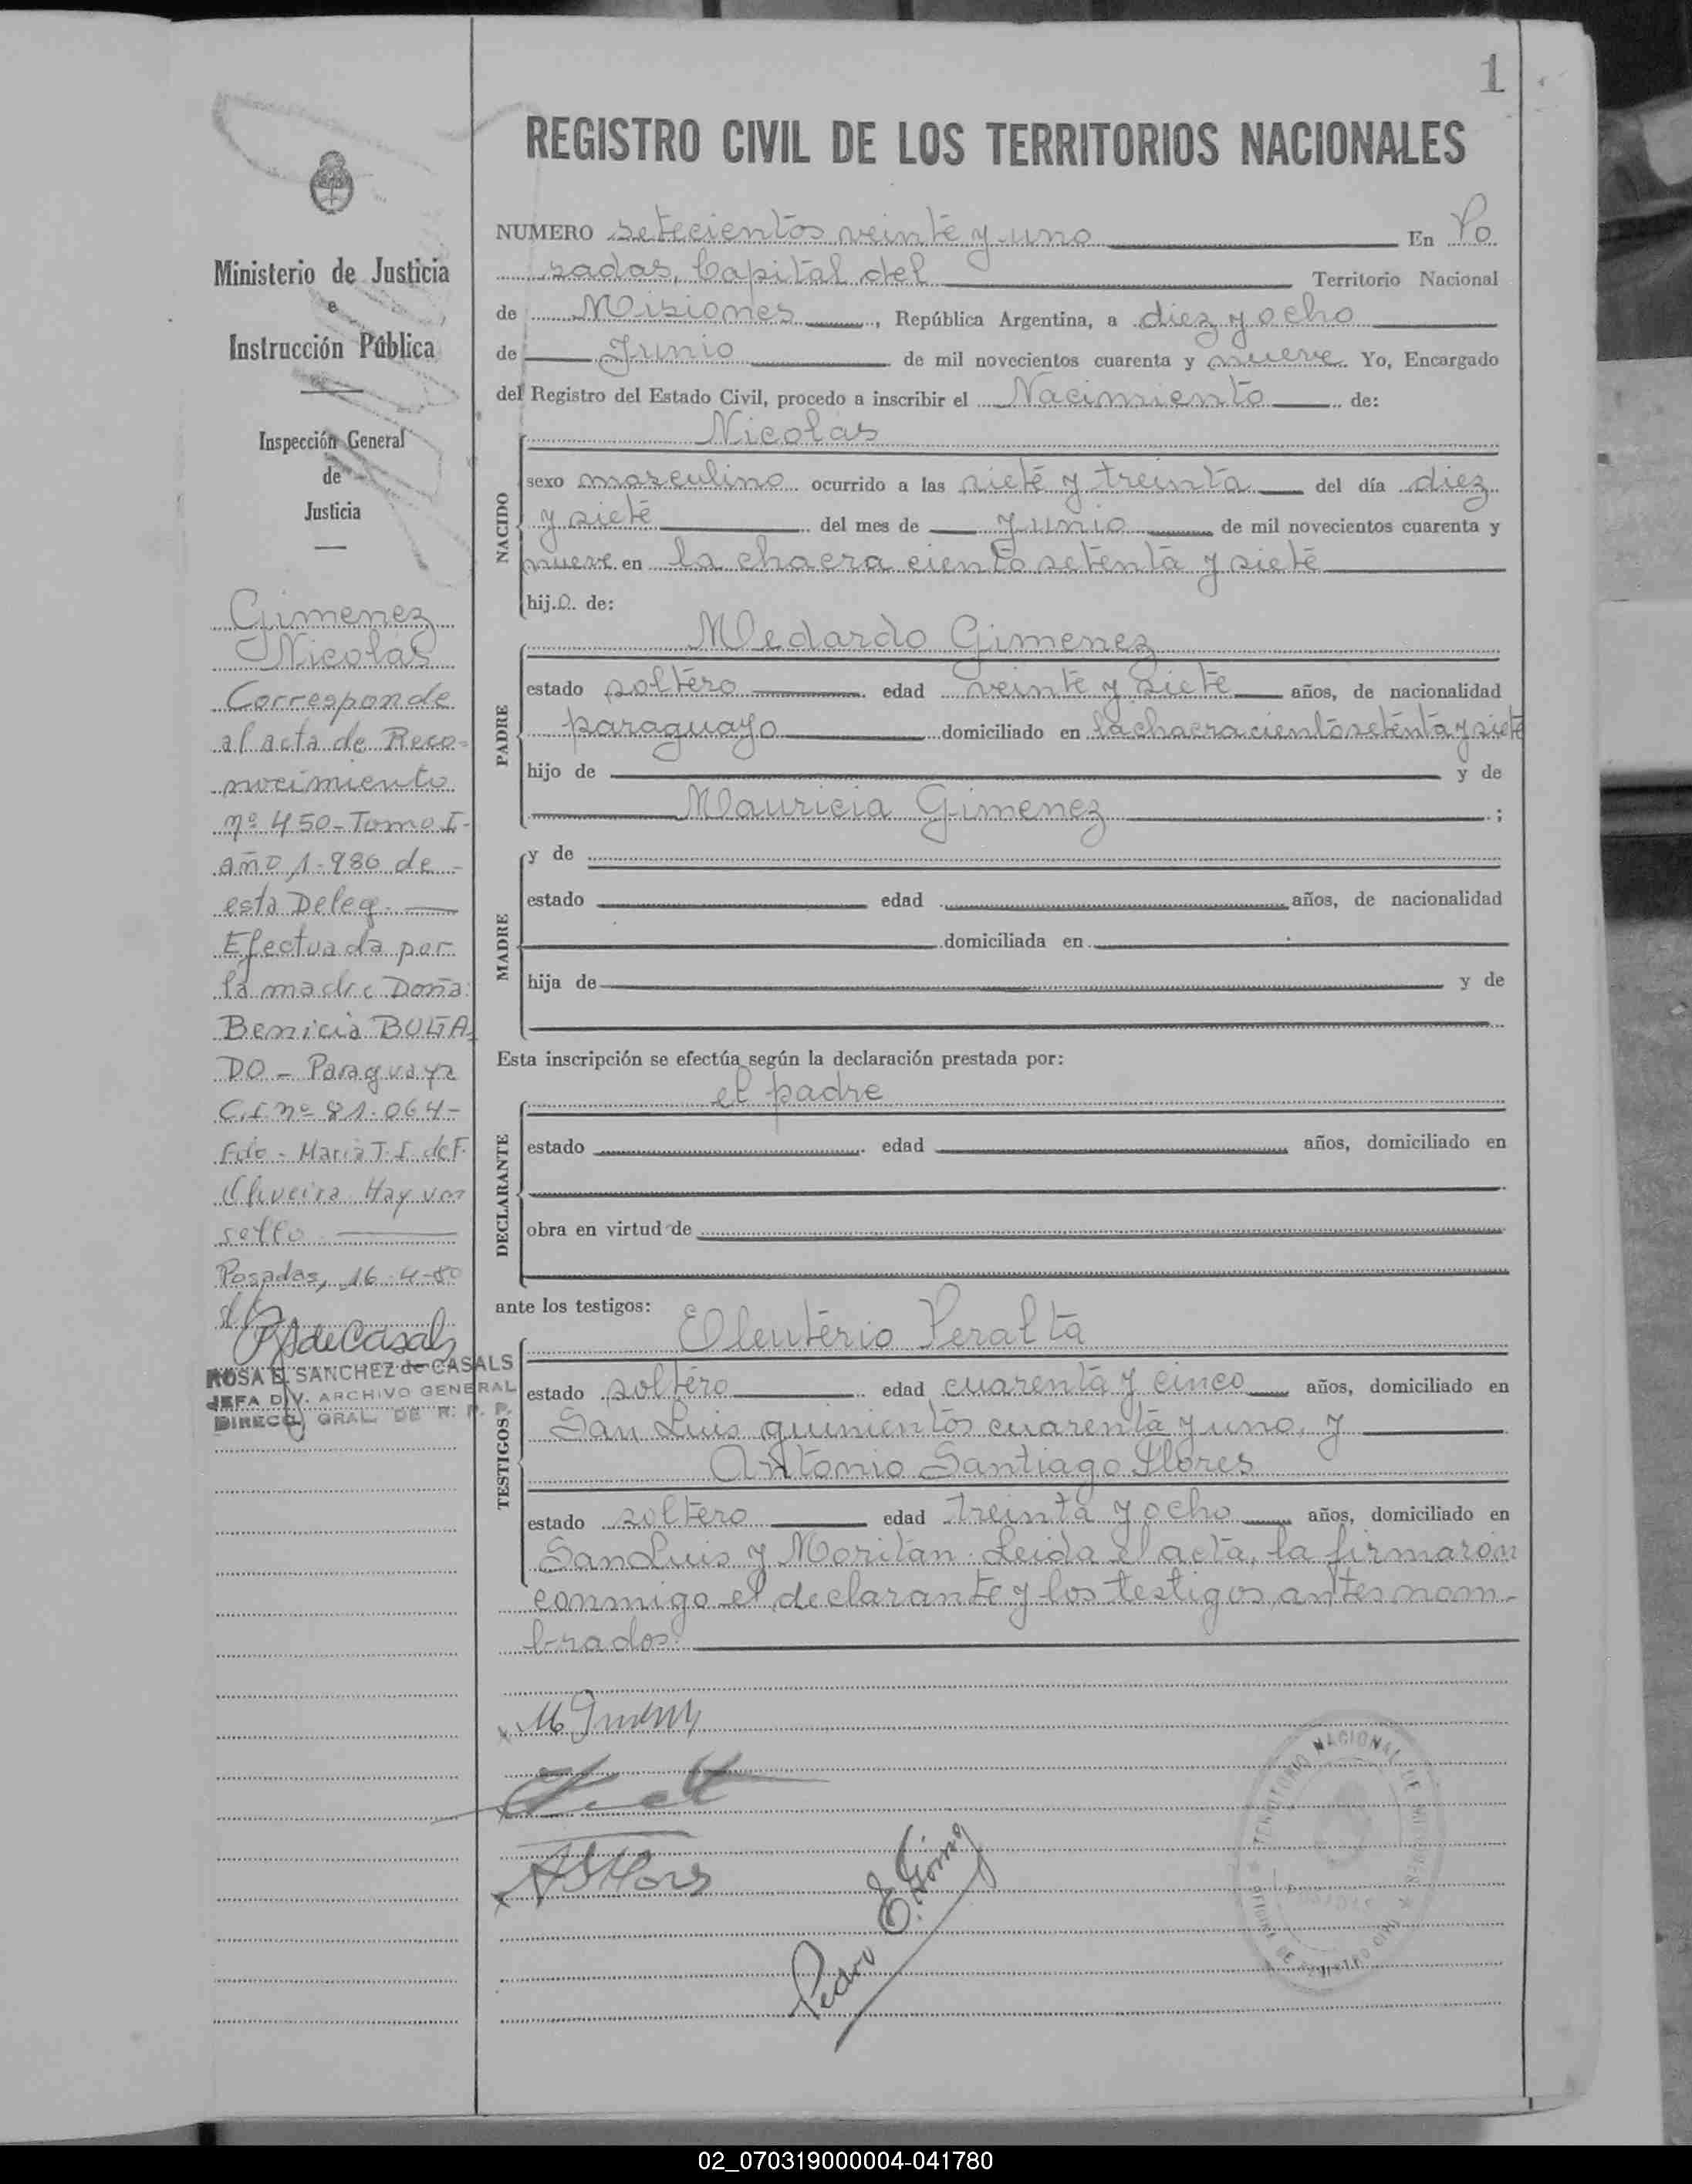 1
REGISTRO CIVIL DE LOS TERRITORIOS NACIONALES
NUMERO setecientos veinte y uno En Po
sadas, Capital del Territorio Nacional
de Misiones, República Argentina, a diez y ocho
de Junio de mil novecientos cuarenta y nueve Yo, Encargado
del Registro del Estado Civil, procedo a inscribir el Nacimiento de:
NACIDO
Nicolas
sexo masculino ocurrido a las siete y treinta del día diez
y siete del mes de Junio de mil novecientos cuarenta y
nueve en la chacra ciento setenta y siete
hijo de:
PADRE
Medardo Gimenez
estado soltero edad veinte y siete años, de nacionalidad
paraguayo domiciliado en la chacra ciento setenta y siete
hijo de y de
Mauricia Gimenez ;
MADRE
y de
estado edad años, de nacionalidad
domiciliada en
hija de y de
Esta inscripción se efectúa según la declaración prestada por:
DECLARANTE
el padre
estado edad años, domiciliado en
obra en virtud de
ante los testigos:
TESTIGOS
Eleuterio Peralta
estado soltero edad cuarenta y cinco años, domiciliado en
San Luis quinientos cuarenta y uno, y
Antonio Santiago Flores
estado soltero edad treinta y ocho años, domiciliado en
San Luis y Moritan. Leida el acta, la firmaron
conmigo el declarante y los testigos antes nom-
brados.
Pedro E.
TERRITORIO NACIONAL DE MISIONES
OFICINA DE REGISTRO CIVIL
POSADAS
Ministerio de Justicia
e
Instrucción Pública
Inspección General
de
Justicia
Gimenez
Nicolás
Corresponde
al acta de Reco-
nocimiento
nº 450-Tomo I-
año 1.980 de
esta Deleg.
Efectuada por
la madre Doña
Benicia BOGA
DO - Paraguaya
C.I. nº 81.064-
Fdo - Maria T. I. de F.
Oliveira Hay un
sello
Posadas, 16-4-80
RSdeCasals
ROSA E. SANCHEZ de CASALS
JEFA DIV. ARCHIVO GENERAL
DIRECC. GRAL. DE R. P. P.
02_070319000004-041780